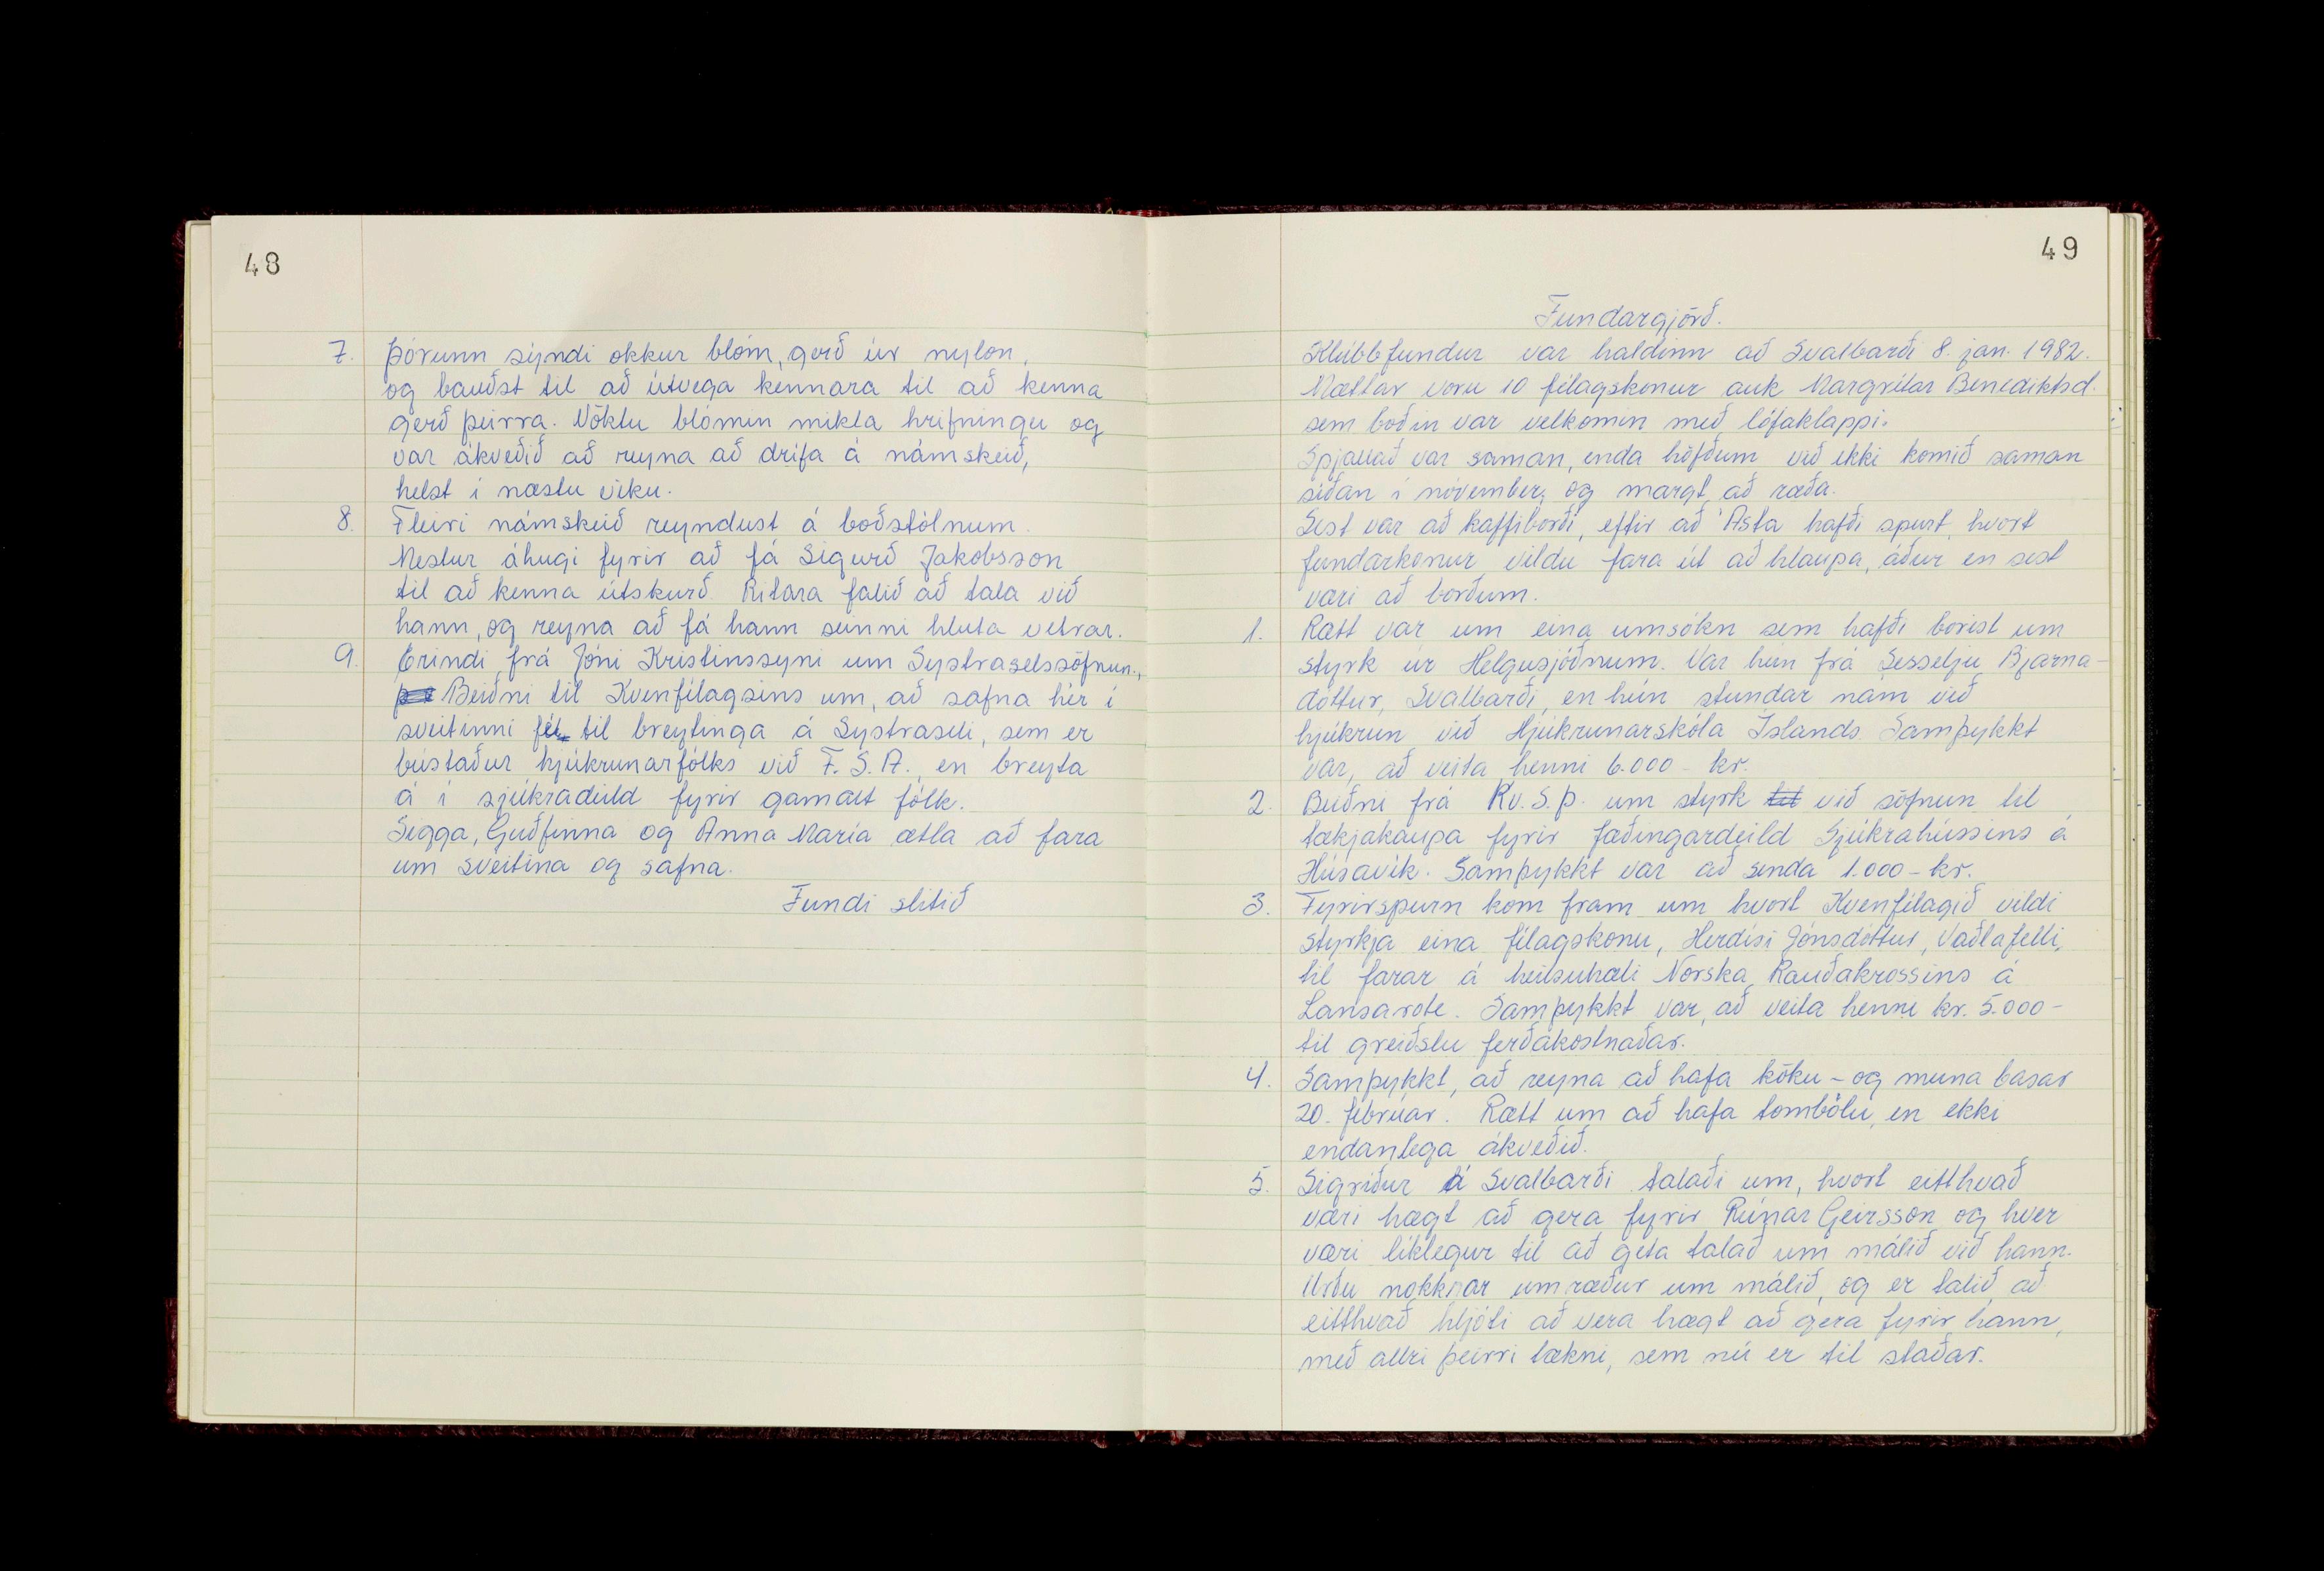 48
7. Þórunn sýndi okkur blóm, gerð úr nylon,
og bauðst til að útvega kennara til að kenna
gerð þeirra. Vöktu blómin mikla hrifningu og
var ákveðið að reyna að drífa á námskeið,
helst í næstu viku.
8. Fleiri námskeið reyndust á boðstólnum.
Mestur áhugi fyrir að fá Sigurð Jakobsson
til að kenna útskurð. Ritara falið að tala við
hann, og reyna að fá hann seinni hluta vetrar.
9. Erindi frá Jóni Kristinssyni um Systraselssöfnun.,
Beiðni til Kvenfélagsins um, að safna hér í
sveitinni fé til breytinga á Systraseli, sem er
bústaður hjúkrunarfólks við F.S.A., en breyta
á í sjúkradeild fyrir gamalt fólk.
Sigga, Guðfinna og Anna María ætla að fara
um sveitina og safna.
Fundi slitið
49
Fundargjörð.
Klúbbfundur var haldinn að Svalbarði 8. jan. 1982.
Mættar voru 10 félagskonur auk Margrétar Benediktsd.
sem boðin var velkomin með lófaklappi.
Spjallað var saman, enda höfðum við ekki komið saman
síðan í nóvember, og margt að ræða.
Sest var að kaffiborði, eftir að Ásta hafði spurt, hvort
fundarkonur vildu fara út að hlaupa, áður en sest
væri að borðum.
1. Rætt var um eina umsókn sem hafði borist um
styrk úr Helgusjóðnum. Var hún frá Sesselju Bjarna-
dóttur, Svalbarði, en hún stundar nám við
hjúkrun við Hjúkrunarskóla Íslands Samþykkt
var, að veita henni 6.000 - kr.
2. Beiðni frá Kv.S.Þ. um styrk til við söfnun til
tækjakaupa fyrir fæðingardeild Sjúkrahússins á
Húsavík. Samþykkt var að senda 1.000 - kr.
3. Fyrirspurn kom fram um hvort Kvenfélagið vildi
styrkja eina félagskonu, Herdísi Jónsdóttur, Vaðlafelli,
til farar á heilsuhæli Norska Rauðakrossins á
Lansarote. Samþykkt var, að veita henni kr. 5.000 -
til greiðslu ferðakostnaðar.
4. Samþykkt, að reyna að hafa köku - og muna basar
20. febrúar. Rætt um að hafa tombólu, en ekki
endanlega ákveðið.
5. Sigríður á Svalbarði talaði um, hvort eitthvað
væri hægt að gera fyrir Rúnar Geirsson og hver
væri líklegur til að geta talað um málið við hann.
Urðu nokkrar umræður um málið, og er talið, að
eitthvað hljóti að vera hægt að gera fyrir hann,
með allri þeirri tækni, sem nú er til staðar.